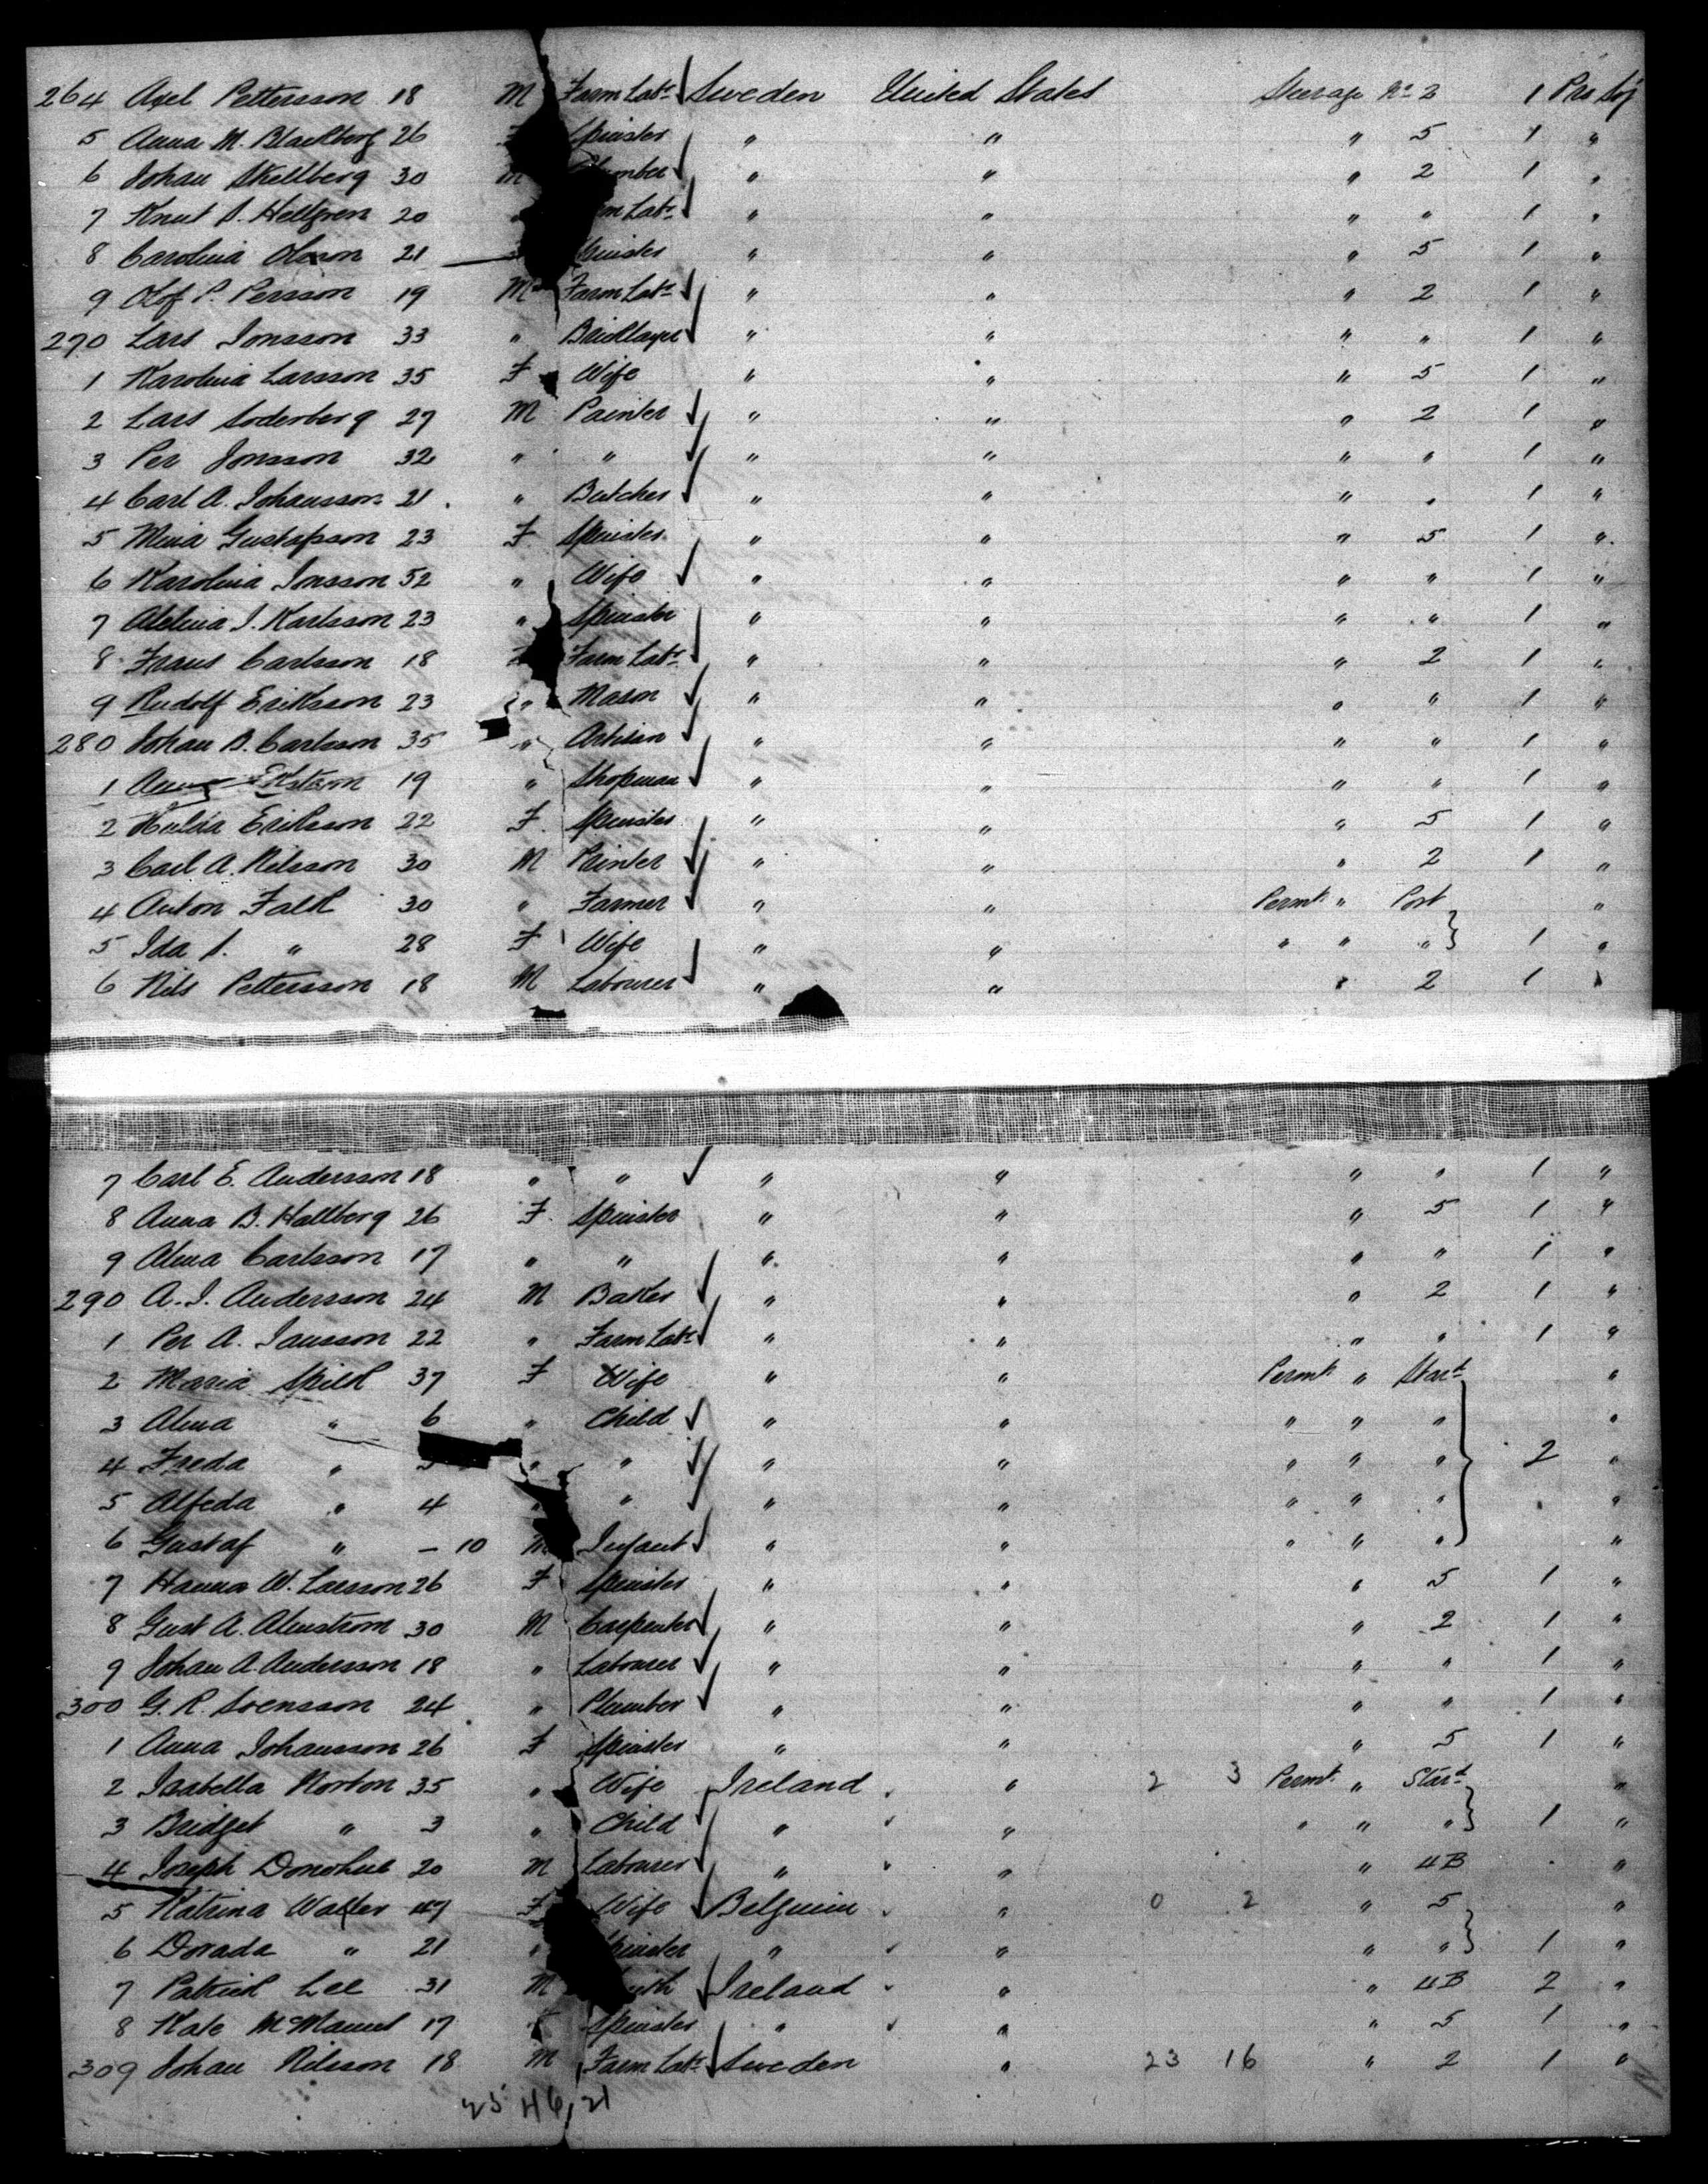 264 Axel Pettersson 18 M Farm Labr Sweden United States Steerage No 2 1 Pro Soj
5 Anna M. Blackberg 26 F Spinster " " " 5 1 "
6 Johan Skellberg 30 M Plumber " " " 2 1 "
7 Knut S. Hellgren 20 " Farm Labr " " " " 1 "
8 Carolina Olsson 21 Spinster " " " 5 1 "
9 Olof P. Persson 19 M Farm Labr " " " 2 1 "
270 Lars Jonsson 33 " Bricklayer " " " " 1 "
1 Karolina Larsson 35 F Wife " " " 5 1 "
2 Lars Soderberg 27 M Painter " " " 2 1 "
3 Per Jonsson 32 " " " " " " 1 "
4 Carl A. Johansson 21 " Butcher " " " " 1 "
5 Mina Gustafsson 23 F Spinster " " " 5 1 "
6 Karolina Jonsson 52 " Wife " " " " 1 "
7 Adelina J. Karlsson 23 " Spinster " " " " 1 "
8 Frans Carlsson 18 Farm Labr " " " 2 1 "
9 Rudolf Eriksson 23 " Mason " " " " 1 "
280 Johan B. Carlsson 35 " Artisan " " " " 1 "
1 Ekstrom 19 " Shopman " " " " 1 "
2 Hulda Eriksson 22 F. Spinster " " " 5 1 "
3 Carl A. Nilsson 30 M Painter " " " 2 1 "
4 Anton Falk 30 " Farmer " " Permt. " Port "
5 Ida S. " 28 F Wife " " " " " 1 "
6 Nils Pettersson 18 M Labourer " " " 2 1 "
7 Carl E. Andersson 18 " " " " " " 1 "
8 Anna B. Hallberg 26 F. Spinster " " " 5 1 "
9 Alma Carlsson 17 " " " " " " 1 "
290 A. J. Andersson 24 M Baker " " " 2 1 "
1 Per A. Jansson 22 " Farm Labr " " " " 1 "
2 Maria Spilk 37 F Wife " " Permt " Start "
3 Alma " 6 " Child " " " " " "
4 Freda " " " " " " " " 2 "
5 Alfeda " 4 " " " " " " " "
6 Gustaf " – 10 M Infant " " " " " "
7 Hanna W. Larsson 26 F Spinster " " " 5 1 "
8 Gust A. Almstrom 30 M Carpenter " " " 2 1 "
9 Johan A. Andersson 18 " Labourer " " " " 1 "
300 G. R. Svensson 24 " Plumber " " " " 1 "
1 Anna Johansson 26 F Spinster " " " 5 1 "
2 Isabella Norton 35 " Wife Ireland " 2 3 Permt. " Start "
3 Bridget " 3 " Child " " " " " 1 "
4 Joseph Donohue 20 M Labourer " " " 4B "
5 Katrina Walter 47 F Wife Belguim " 0 2 " 5 "
6 Dorada " 21 " Spinster " " " " 1 "
7 Patrick Lee 31 M Ireland " " 4B 2 "
8 Kate McManus 17 F Spinster " " " 5 1 "
309 Johan Nilsson 18 M Farm Labr Sweden " 23 16 " 2 1 "
25 46 21